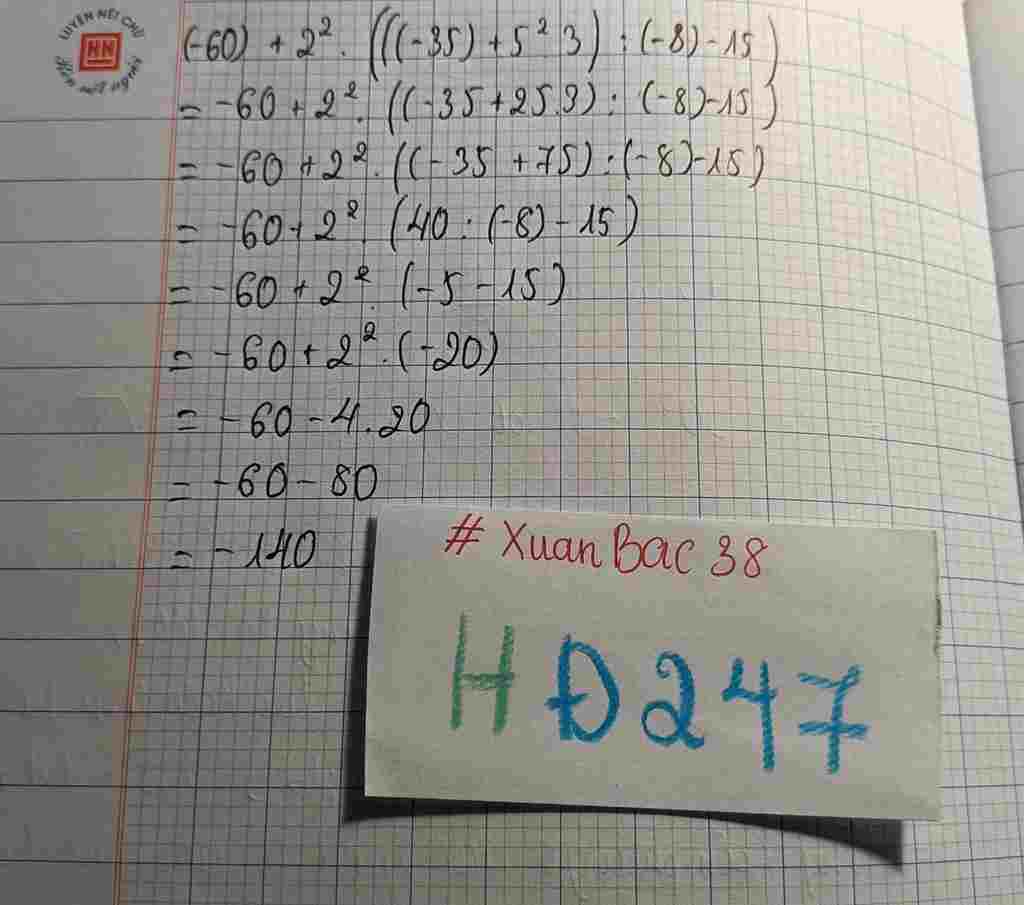 LUYỆN NÉT CHỮ
HN
Rèn nết người
(-60) + 2². (((-35) + 5² 3) : (-8) - 15)
= -60 + 2². ((-35 + 25.3) : (-8) - 15)
= -60 + 2². ((-35 + 75) : (-8) - 15)
= -60 + 2². (40 : (-8) - 15)
= -60 + 2². (-5 - 15)
= -60 + 2². (-20)
= -60 - 4.20
= -60 - 80
= -140
# XuanBac 38
HĐ247